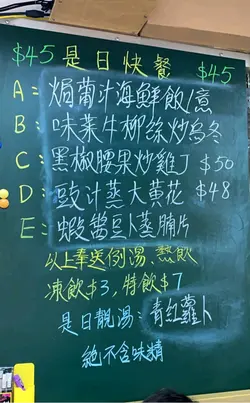 $45 是日快餐 $45
A: 焗葡汁海鮮飯/意
B: 味菜牛柳絲炒烏冬
C: 黑椒腰果炒雞丁 $50
D: 豉汁蒸大黃花 $48
E: 蝦醬豆卜蒸腩片
以上奉送例湯、熱飲
凍飲$3, 特飲$7
是日靚湯: 青紅蘿卜
絕不含味精